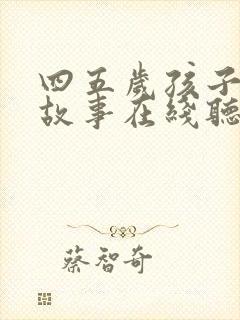 四五歲孩子
故事在綫聽
蔡智奇